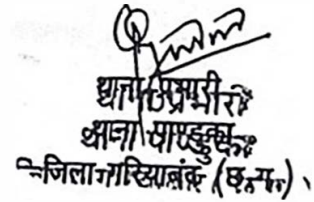 थाना प्रभारी
थाना पाण्डुका
जिला गरियाबंद (छ.ग.)